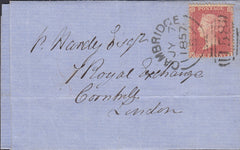 CAMBRIDGE
JY 7
1857
POSTAGE
P. Hardy Esqr
7 Royal Exchange
Cornhill
London